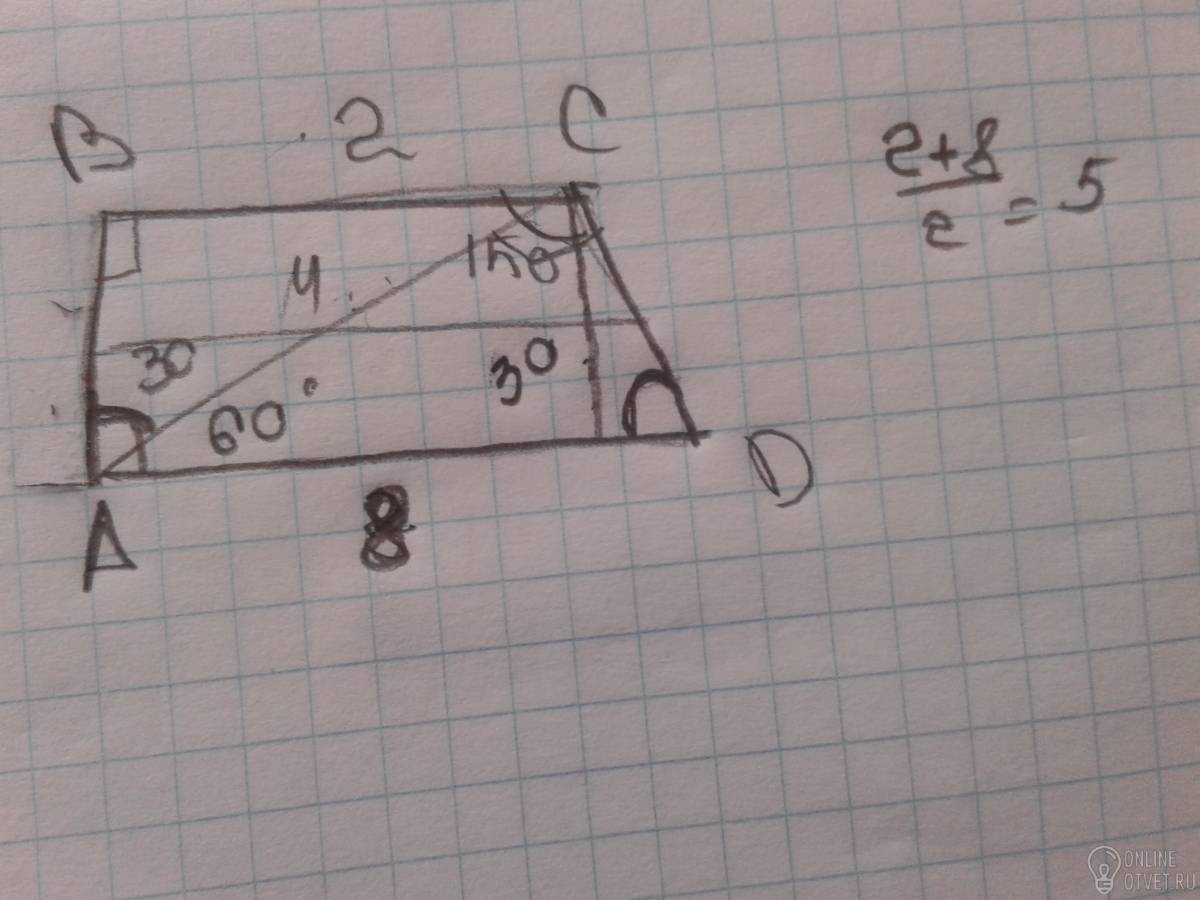 B 2 C
2+8
/2 = 5
4 150
30 60° 30
A 8 D
ONLINE
OTVET.RU